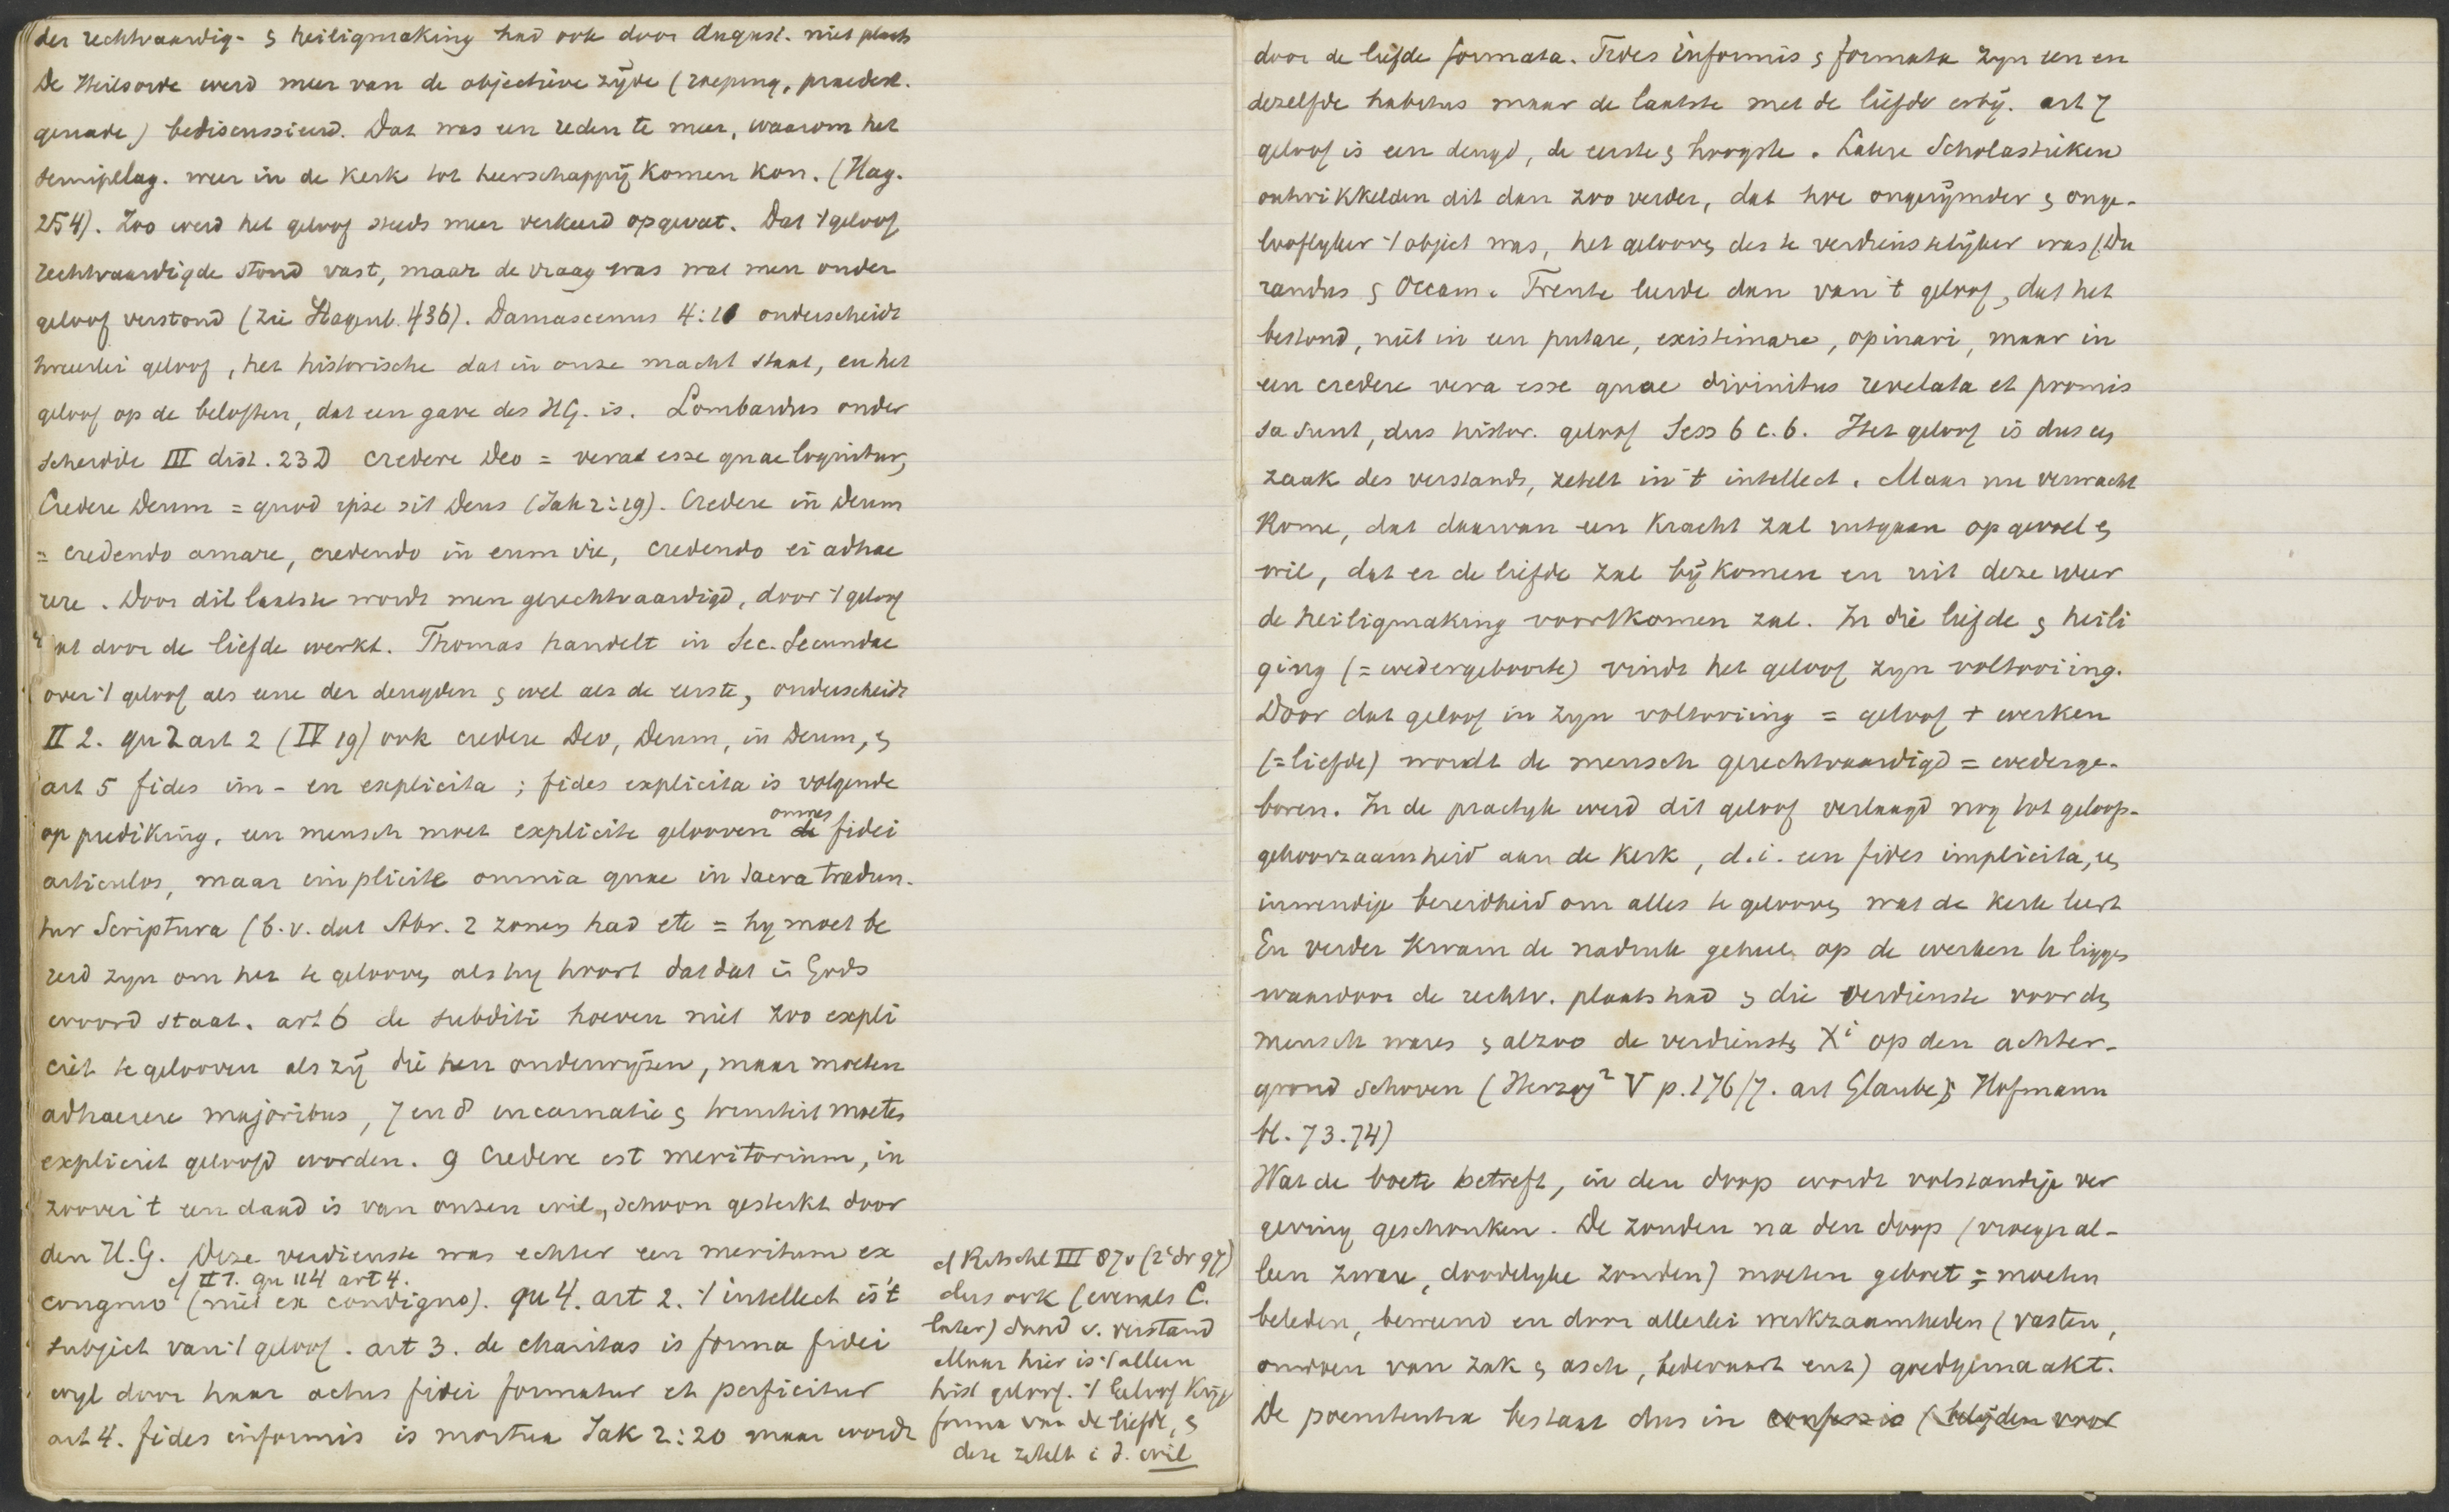 der rechtvaardig- & heiligmaking had ook door August. niet plaats
De Heilsorde werd meer van de objectieve zijde (roeping, praedest.
genade) bediscussieerd. Dat was een reden te meer, waarom het
semipelag. weer in de kerk tot heerschappij komen kon. (Hag.
254). Zoo werd het geloof steeds meer verkeerd opgevat. Dat 't geloof
rechtvaardigde stond vast, maar de vraag was wat men onder
geloof verstond (zie Hagenb. 436). Damascenus 4:10 onderscheidt
tweeërlei geloof, het historische dat in onze macht staat, en het
geloof op de beloften, dat een gave des HG. is. Lombardus onder
scheidde III dist. 23 D credere Deo = vera esse quae loquitur,
Credere Deum = quod ipse sit Deus (Jak 2:19). Credere in Deum
= credendo amare, credendo in eum ire, credendo ei adhae
rere. Door dit laatste wordt men gerechtvaardigd, door 't geloof
dat door de liefde werkt. Thomas handelt in Sec. Secundae
over 't geloof als eene der deugden & wel als de eerste, onderscheidt
II 2. qu 2 art 2 (IV 19) ook credere Deo, Deum, in Deum, &
art 5 fides im- en explicita ; fides explicita is volgende
op prediking. een mensch moet explicite gelooven omnes fidei
articulos, maar implicite omnia quae in sacra tradun-
tur Scriptura (b.v. dat Abr. 2 zonen had etc = hy moet be
reid zyn om het te gelooven als hy hoort dat dat in Gods
woord staat. art 6 de subditi hoeven niet zoo expli
ciet te gelooven als zij die hen onderwijzen, maar moeten
adhaerere majoribus, 7 en 8 incarnatie & triniteit moeten
expliciet geloofd worden. 9 Credere est meritorium, in
zoover 't een daad is van onzen wil, schoon gesterkt door
den H.G. Deze verdienste was echter een meritum ex
cf II 1. qu 114 art 4.
congruo (niet ex condigno). qu 4. art 2. 't intellect is 't
subject van 't geloof. art 3. de charitas is forma fidei
wyl door haar actus fidei formatur et perficitur
art 4. fides informis is mortua Jak 2:20 maar wordt
cf Ritschl III 87v (2e dr 97)
dus ook (evenals C.
later) daad v. verstand
Maar hier is 't alleen
hist geloof. 't Geloof krijgt
forma van de liefde, &
deze zetelt i d. wil
door de liefde formata. Fides informis & formata zyn een en
dezelfde habitus maar de laatste met de liefde erbij. art 7
geloof is een deugd, de eerste & hoogste. Latere Scholastieken
ontwikkelden dit dan zoo verder, dat hoe ongerijmder & onge-
looflyker 't object was, het gelooven des te verdienstelijker was (Du
randus & Occam. Trente leerde dan van 't geloof, dat het
bestond, niet in een putare, existimare, opinari, maar in
een credere vera esse quae divinitus revelata et promis
sa sunt, dus histor. geloof Sess 6 c. 6. Het geloof is dus een
zaak des verstands, zetelt in 't intellect. Maar nu verwacht
Rome, dat daarvan een kracht zal uitgaan op gevoel &
wil, dat er de liefde zal bij komen en uit deze weer
de heiligmaking voortkomen zal. In die liefde & heili
ging (= wedergeboorte) vindt het geloof zyn voltooiing.
Door dat geloof in zyn voltooiing = geloof + werken
(= liefde) wordt de mensch gerechtvaardigd = wederge-
boren. In de practyk werd dit geloof verlaagd nog tot geloofs-
gehoorzaamheid aan de kerk, d.i. een fides implicita, een
inwendige bereidheid om alles te gelooven wat de kerk leert
En verder kwam de nadruk geheel op de werken te liggen
waardoor de rechtv. plaats had & die verdienste voor den
mensch waren & alzoo de verdiensten Xi op den achter-
grond schoven (Herzog² V p. 176/7. art Glaube; Hofmann
bl. 73.74)
Wat de boete betreft, in den doop wordt volstandige ver
geving geschonken. De zonden na den doop (vroeger al-
leen zware, doodelyke zonden) moeten geboet = moeten
beleden, beweend en door allerlei werkzaamheden (vasten,
omdoen van zak & asch, bedevaart enz) goedgemaakt.
De poenitentia bestaat dus in confessio (belijden voor